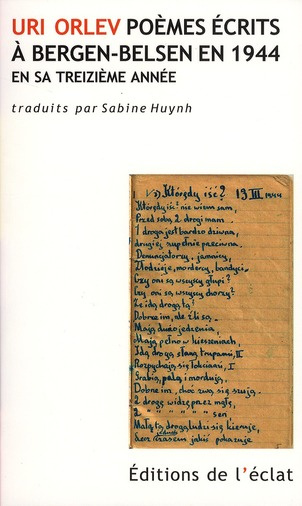 URI ORLEV POÈMES ÉCRITS
À BERGEN-BELSEN EN 1944
EN SA TREIZIÈME ANNÉE
traduits par Sabine Huynh
Którędy iść? 13 III 1944
Którędy iść? nie wiem sam,
Przed sobą 2 drogi mam.
1 droga jest bardzo dziwna,
drugiej zupełnie przeciwna.
Denuncjatorzy, jamnicy,
Złodzieje, mordercy, bandyci.
Czy oni są wszyscy głupi?
Czy oni są wszyscy chorzy?
Że idą drogą tą?
Dobrze im, ale źli są.
Mają dużo jedzenia,
Mają pełno w kieszeniach,
Idą drogą, słaną trupami,
Rozpychają się łokciami,
Grabią, palą i mordują,
Dobrze im, choć zwą się szują.
2 drogę widzę przez mgłę,
2 " " " " sen
Małą tą drogą ludzi się kieruje,
Lecz czasem jakiś pokazuje
Éditions de l'éclat